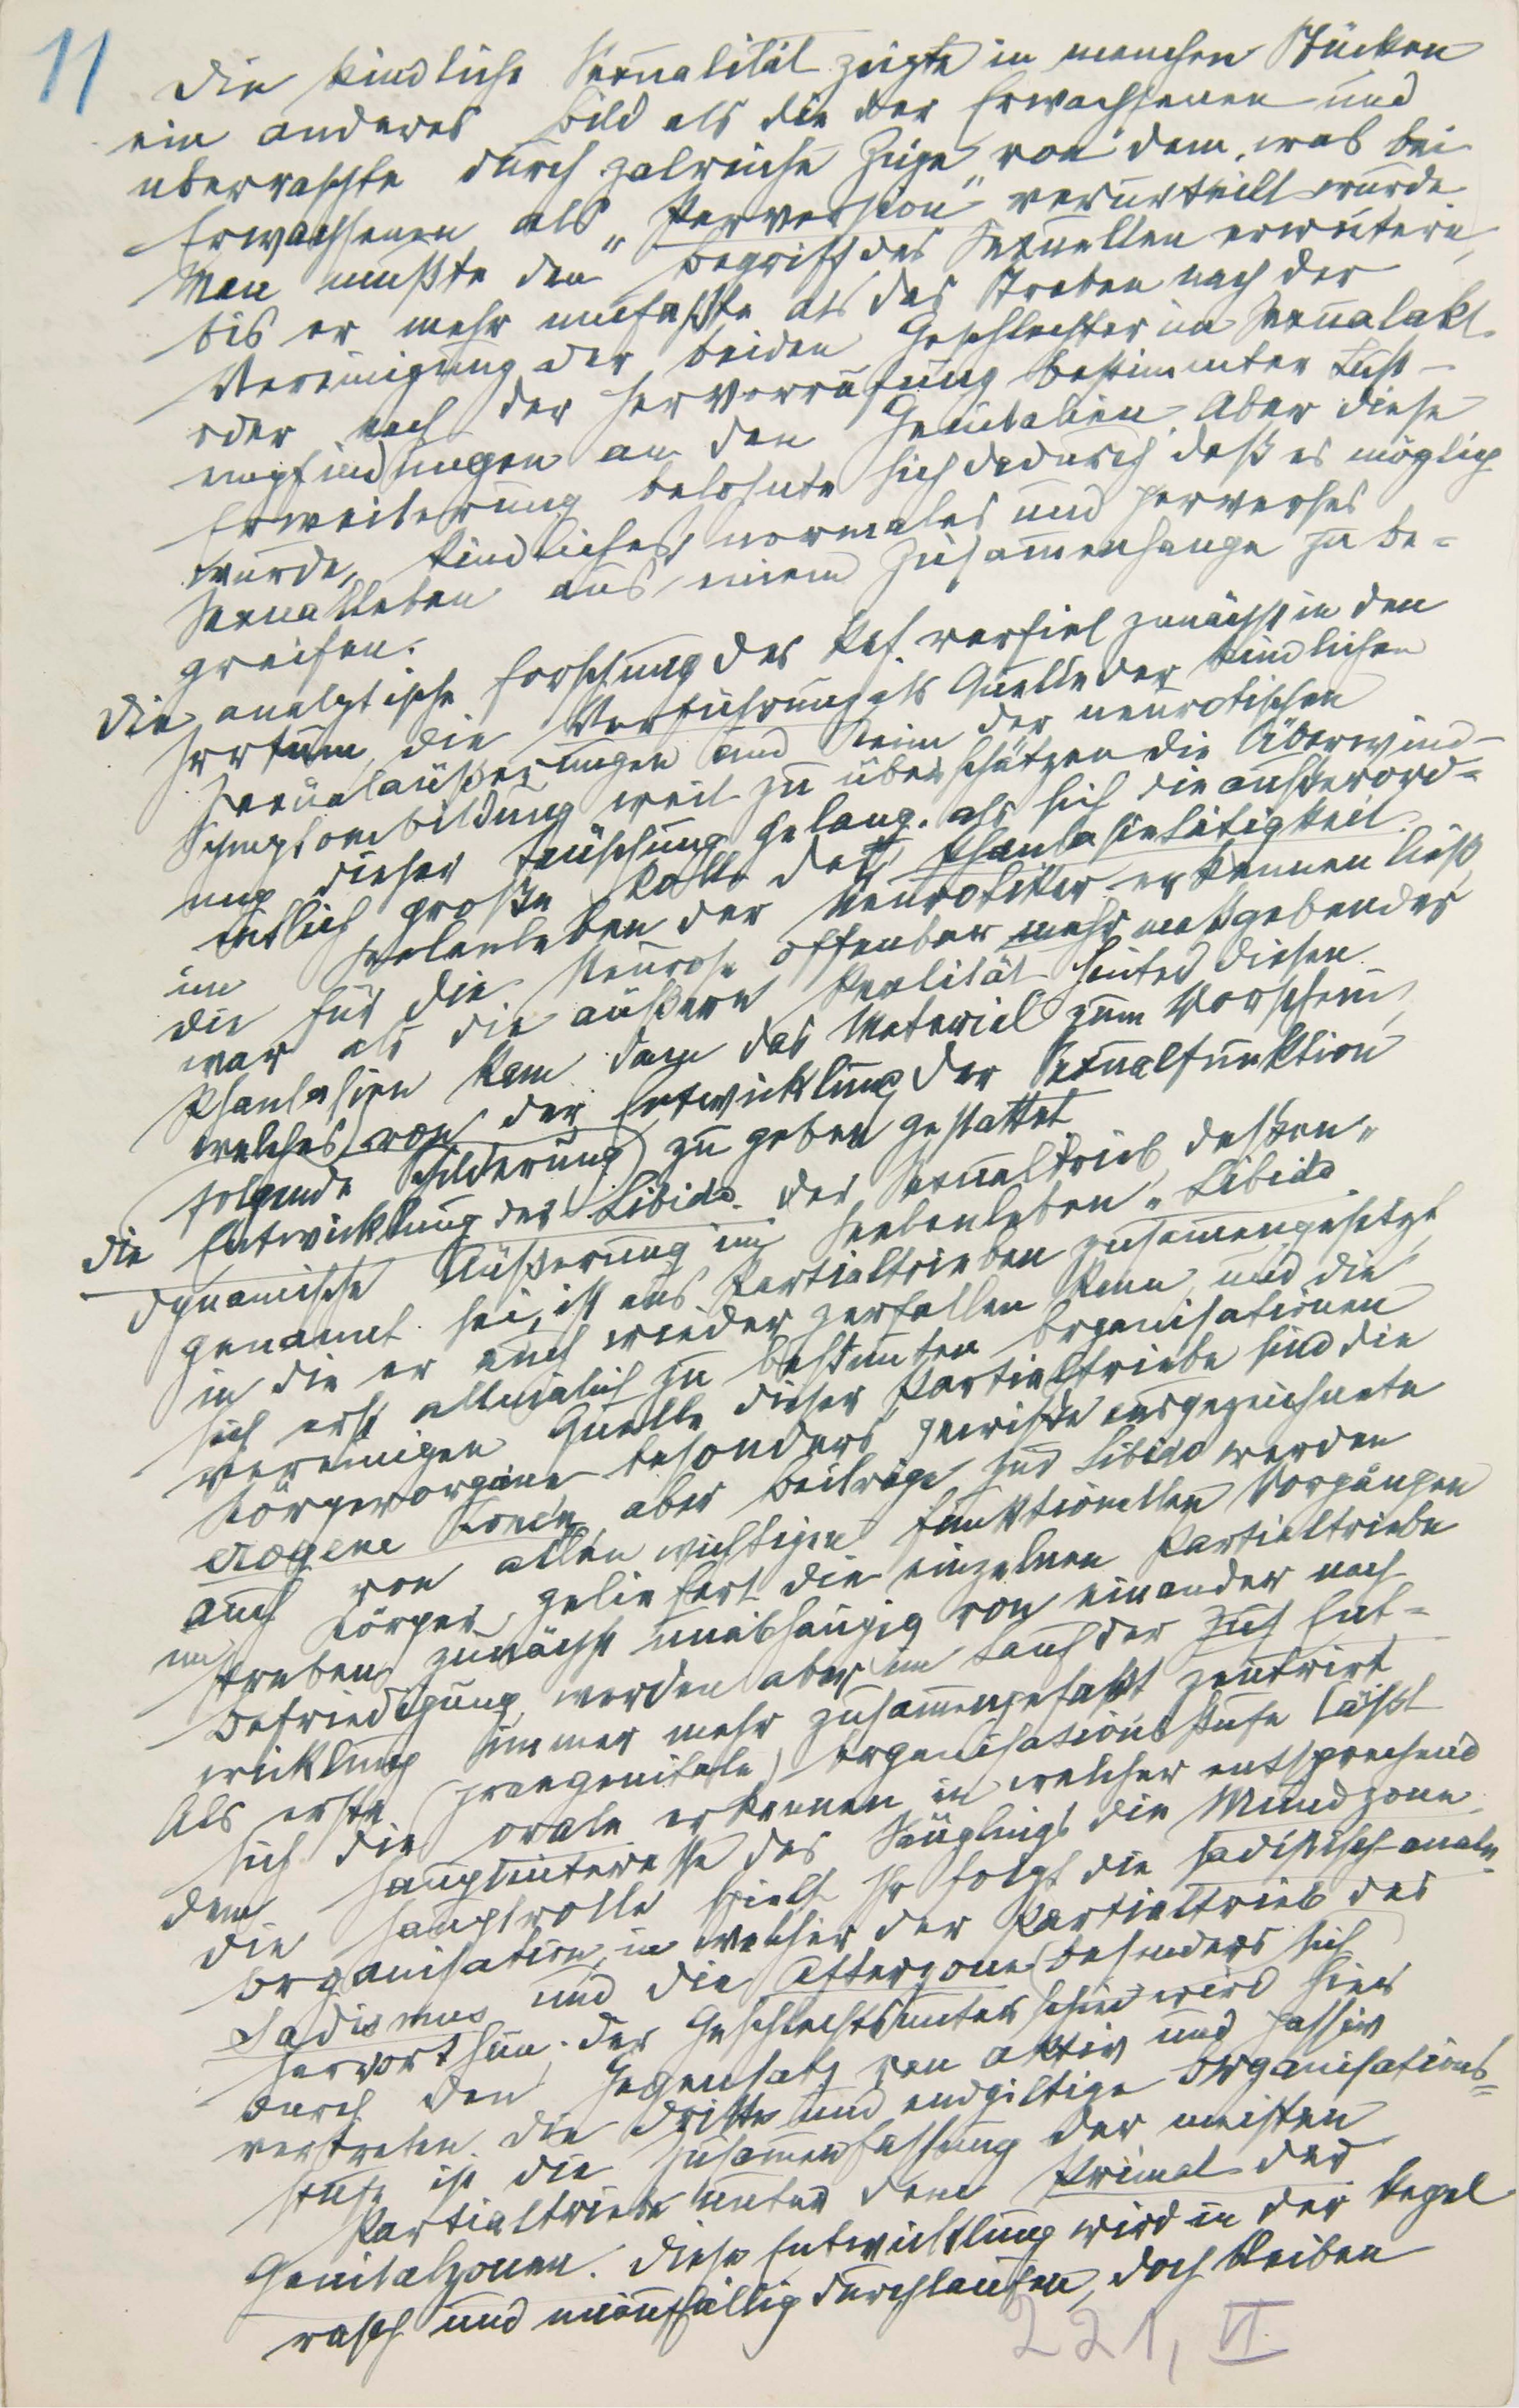 11
Die kindliche Sexualität zeigte in manchen Stücken
ein anderes Bild als die der Erwachsenen und
überraschte durch zalreiche Züge von dem, was bei
Erwachsenen als „Perversion“ verurteilt wurde
Man mußte den Begriff des Sexuellen erweitern,
bis er mehr umfaßte als das Streben nach der
Vereinigung der beiden Geschlechter im Sexualakt
oder nach der Hervorrufung bestimmter Lust-
empfindungen an den Genitalien. Aber diese
Erweiterung belohnte sich dadurch daß es möglich
wurde, kindliches, normales und perverses
Sexualleben aus einem Zusammenhange zu be=
greifen.
Die analytische Forschung des Ref. verfiel zunächst in den
Irrtum, die Verführung als Quelle der kindlichen
Sexualäußerungen und Keim der neurotischen
Symptombildung weit zu überschätzen die Überwind-
ung dieser Täuschung gelang, als sich die außerord=
entlich große Rolle der Phantasietätigkeit
im Seelenleben der Neurotiker erkennen ließ,
die für die Neurose offenbar mehr maßgebender
war als die äußere Realität hinter diesen
Phantasien kam dann das Material zum Vorschein,
welches (von der Entwicklung der Sexualfunktion
folgende Schilderung) zu geben gestattet
Die Entwicklung der Libido. der Sexualtrieb, dessen
dynamische Äußerung im Seelenleben „Libido
genannt sei, ist aus Partialtrieben zusammengesetzt,
in die er auch wieder zerfallen kann, und die
sich erst allmälich zu bestimmten Organisationen
vereinigen Quelle dieser Partialtriebe sind die
Körperorgane besonders gewisse ausgezeichnete
erogene Zonen, aber Beiträge zur Libido werden
auch von allen wichtigen funktionellen Vorgängen
im Körper geliefert die einzelnen Partialtriebe
streben zunächst unabhängig von einander nach
Befriedigung, werden aber im Lauf der Ent=
wicklung immer mehr zusammengefaßt zentrirt
Als erste (praegenitale) Organisationsstufe läßt
sich die orale erkennen in welcher entsprechend
dem Hauptinteresse des Säuglings die Mundzone
die Hauptrolle spielt Ihr folgt die sadistisch-anale
Organisation, in welcher der Partialtrieb des
Sadismus und die Afterzone besonders sich
hervorthun; der Geschlechtsunterschied wird hier
durch den Gegensatz von aktiv und passiv
vertreten. Die dritte und endgiltige Organisations=
stufe ist die Zusammenfassung der meisten
Partialtriebe unter dem Primat der
Genitalzonen. Diese Entwicklung wird in der Regel
rasch und unauffällig durchlaufen, doch bleiben
221, VI